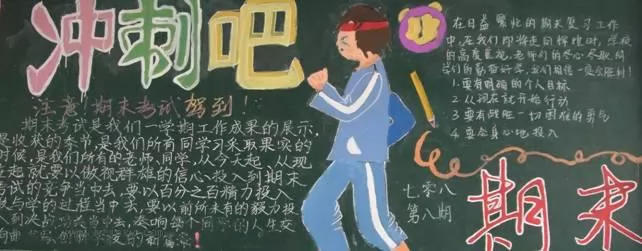 冲刺吧
注意！期末考试驾到！
期末考试是我们一学期工作成果的展示，
是收获的季节，是我们所有同学习采取果实的
时候，是我们所有的老师，同学，从今天起，从现
在起就要以傲视群雄的信心投入到期末
考试的竞争当中去，要以百分之百精力投入
教与学的过程当中去，要以前所未有的毅力投
入到次的大当中去，奏响每个同学的人生交
响曲
在日益繁忙的期末复习工作
中，在我们即将走向辉煌时，学校
的高度重视，老师们的尽心尽职，同
学们的勤奋好学，我们相信一定会胜利！
1.要有明确的个人目标
2.从现在就开始行动
3.要有战胜一切困难的勇气
4.要全身心地投入
七零八
第八期
期末